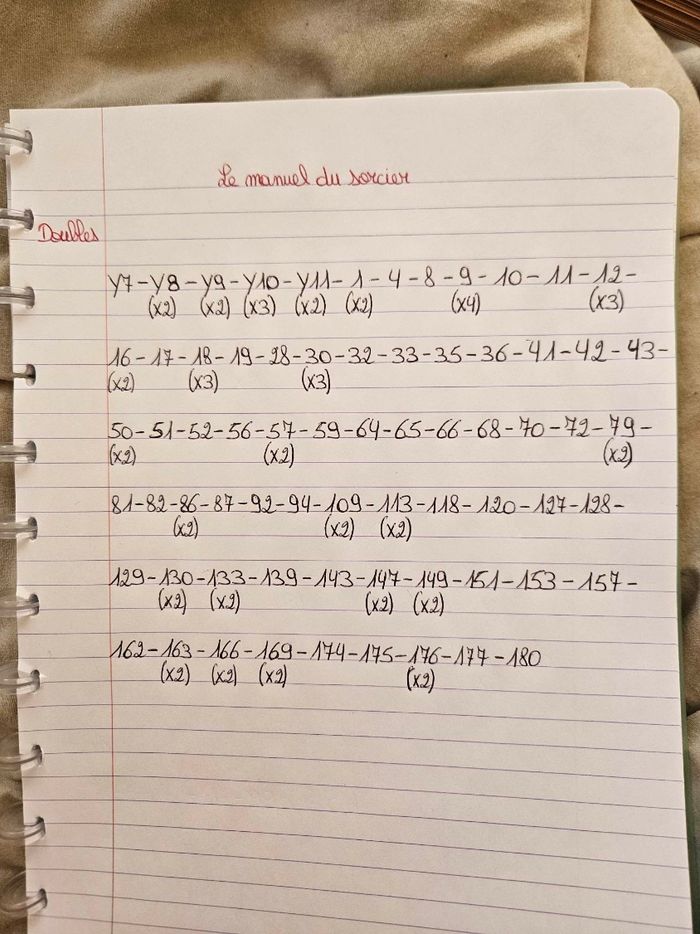 Le manuel du sorcier
Doubles
Y7-Y8-Y9-Y10-Y11-1-4-8-9-10-11-12-
(x2) (x2) (x3) (x2) (x2) (x4) (x3)
16-17-18-19-28-30-32-33-35-36-41-42-43-
(x2) (x3) (x3)
50-51-52-56-57-59-64-65-66-68-70-72-79-
(x2) (x2) (x2)
81-82-86-87-92-94-109-113-118-120-127-128-
(x2) (x2) (x2)
129-130-133-139-143-147-149-151-153-157-
(x2) (x2) (x2) (x2)
162-163-166-169-174-175-176-177-180
(x2) (x2) (x2) (x2)